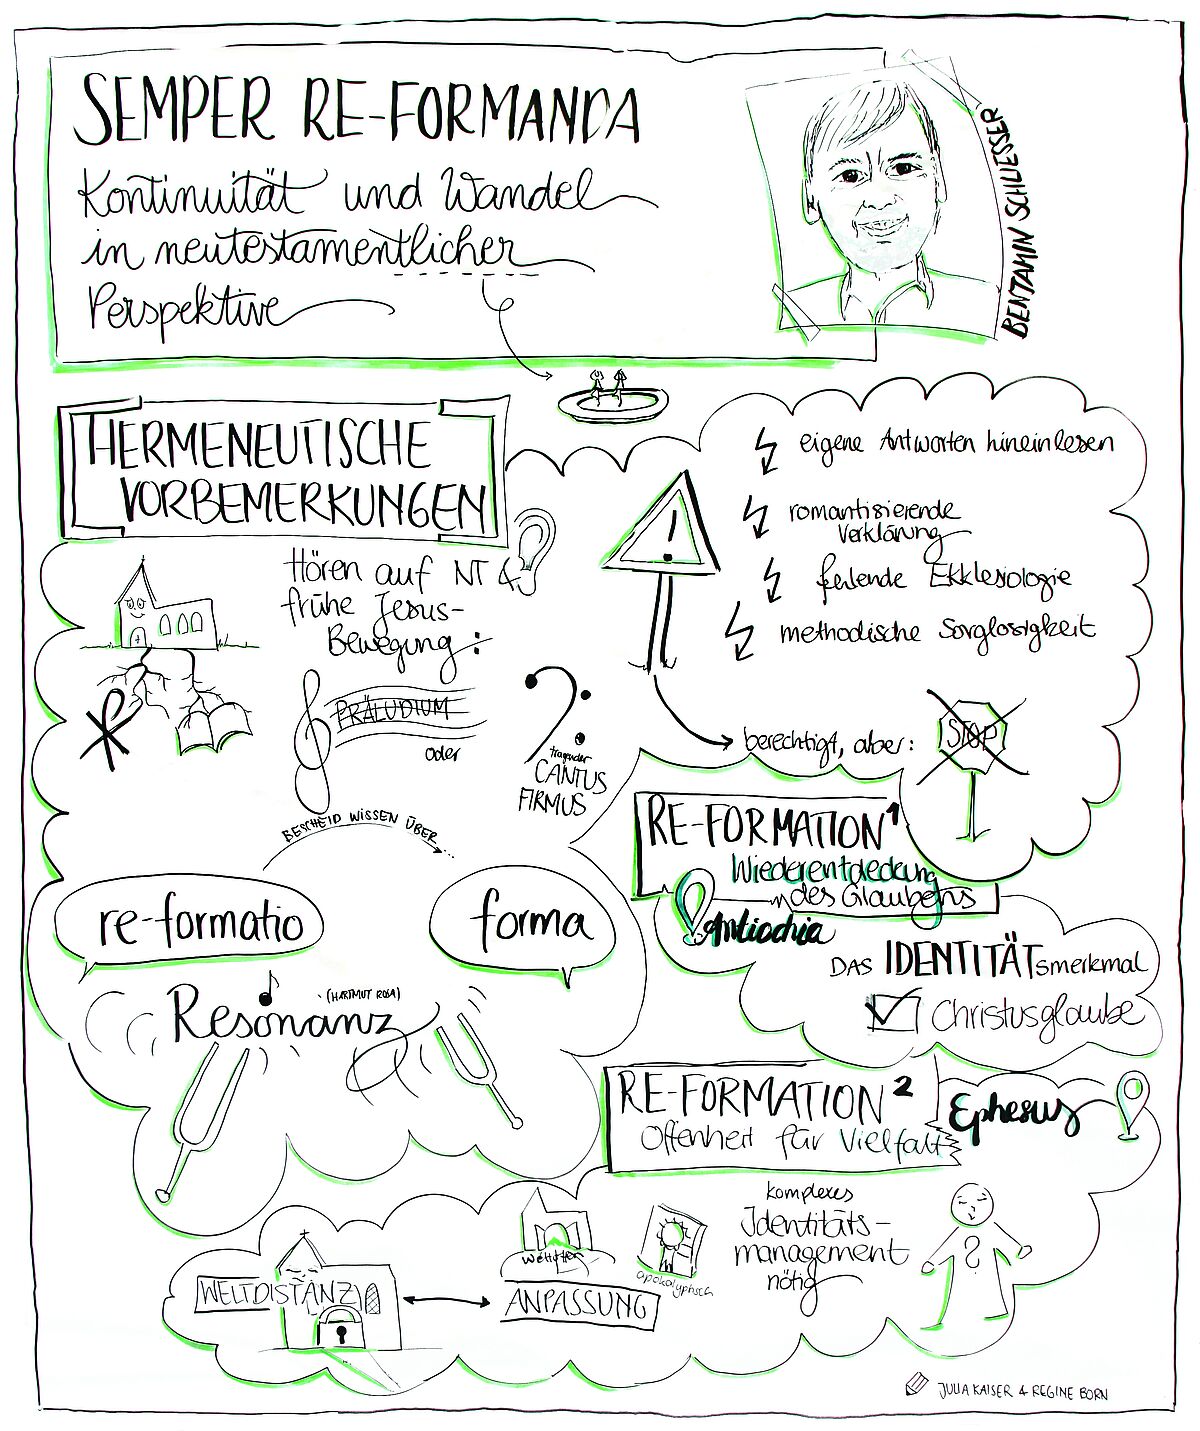 SEMPER RE-FORMANDA
Kontinuität und Wandel
in neutestamentlicher
Perspektive
BENJAMIN SCHLIESSER
HERMENEUTISCHE
VORBEMERKUNGEN
Hören auf NT &
frühe Jesus-
Bewegung:
PRÄLUDIUM
oder
tragender
CANTUS
FIRMUS
eigene Antworten hineinlesen
romantisierende
Verklärung
fehlende Ekklesiologie
methodische Sorglosigkeit
berechtigt, aber:
STOP
BESCHEID WISSEN ÜBER...
re-formatio
forma
Resonanz
(HARTMUT ROSA)
RE-FORMATION 1
Wiederentdeckung
des Glaubens
Antiochia
DAS IDENTITÄTsmerkmal
Christusglaube
RE-FORMATION 2
Offenheit für Vielfalt
Ephesus
WELTDISTANZ
weltoffen
ANPASSUNG
apokalyptisch
komplexes
Identitäts-
management
nötig
?
JULIA KAISER & REGINE BORN